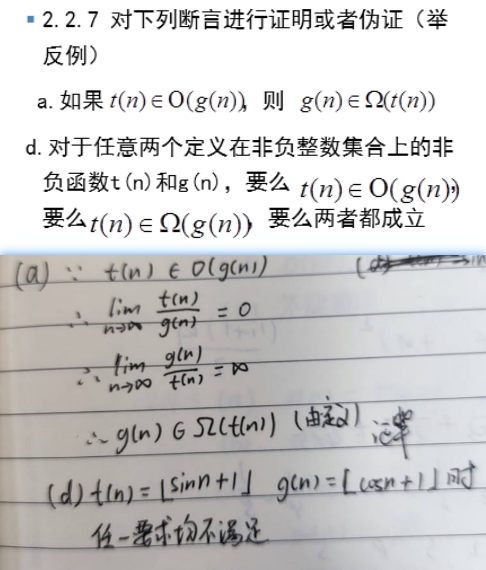 ▪ 2.2.7 对下列断言进行证明或者伪证（举
反例）
a. 如果 t(n)∈O(g(n)), 则 g(n)∈Ω(t(n))
d. 对于任意两个定义在非负整数集合上的非
负函数t(n)和g(n)，要么 t(n)∈O(g(n)),
要么t(n)∈Ω(g(n)), 要么两者都成立
(a) ∵ t(n) ∈ O(g(n))
∴ lim n→∞ t(n)/g(n) = 0
∴ lim n→∞ g(n)/t(n) = ∞
∴ g(n) ∈ Ω(t(n)) (由定义) 证毕
(d) t(n) = ⌊sinn+1⌋ g(n) = ⌊cosn+1⌋ 时
任一要求均不满足